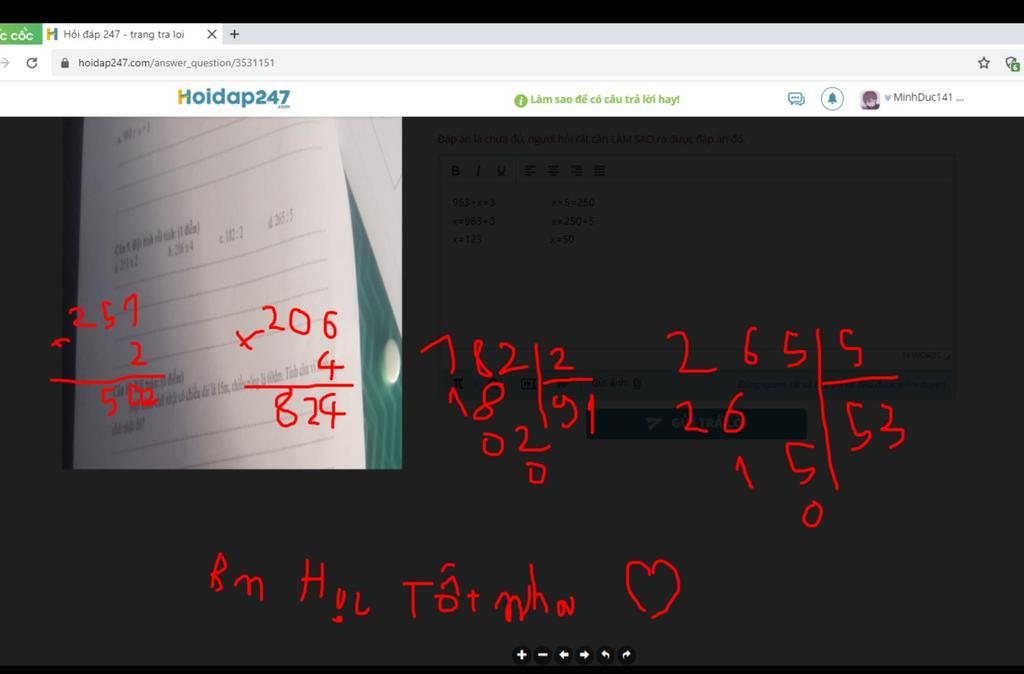 c cốc
Hỏi đáp 247 - trang tra loi
hoidap247.com/answer_question/3531151
Hoidap247
.com
Làm sao để có câu trả lời hay!
MinhDuc141 ...
Đáp án là chưa đủ, người hỏi rất cần LÀM SAO ra được đáp án đó.
B I U
963÷x=3 x×5=250
x=963÷3 x=250÷5
x=123 x=50
Câu 9. Đặt tính rồi tính: (1 điểm)
a. 251 x 2 b. 206 x 4 c. 182 : 2 d. 265 : 5
251
×
2
502
206
×
4
824
182 2
18 91
02
0
265 5
26 53
15
0
(1 điểm)
có chiều dài là 15m, chiều rộng là 60dm. Tính chu vi
14 WORDS
Gửi ảnh:
GỬI TRẢ LỜI
Bn Học Tốt nha